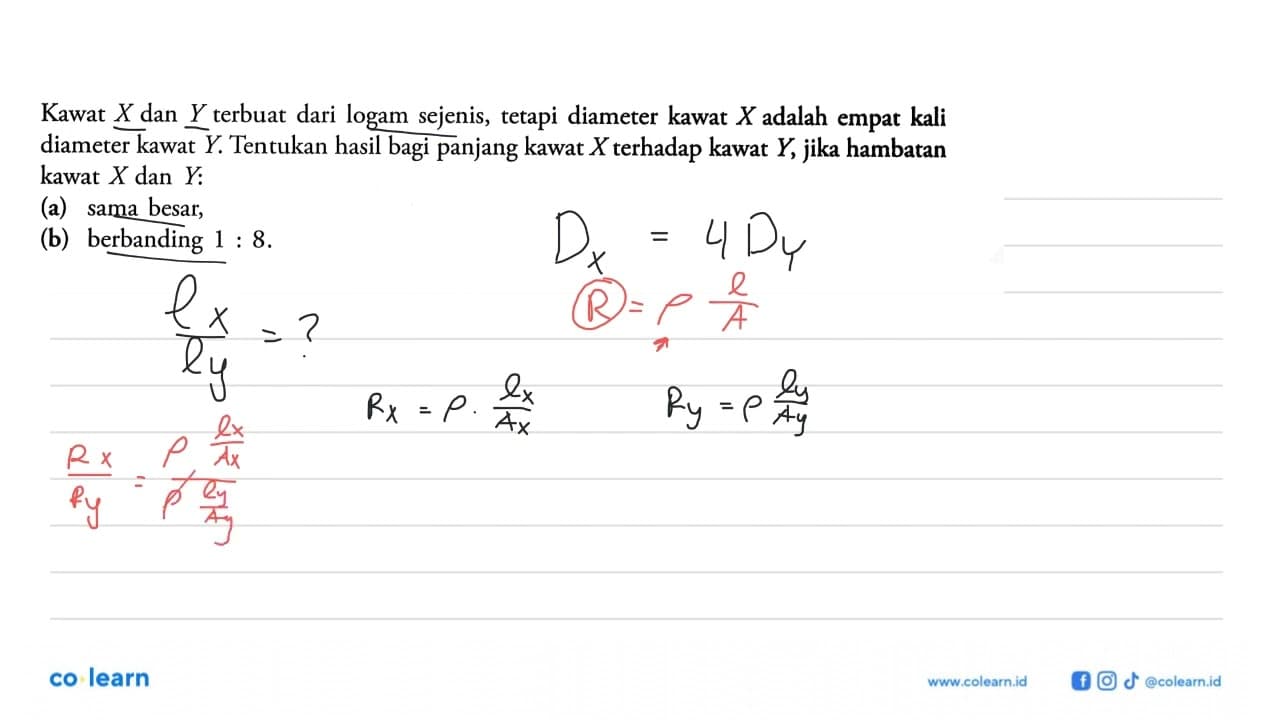 Kawat X dan Y terbuat dari logam sejenis, tetapi diameter kawat X adalah empat kali
diameter kawat Y. Tentukan hasil bagi panjang kawat X terhadap kawat Y, jika hambatan
kawat X dan Y:
(a) sama besar,
(b) berbanding 1 : 8.
D_x = 4 D_y
R = ρ l/A
l_x/l_y = ?
R_x = ρ. l_x/A_x
R_y = ρ l_y/A_y
R_x/R_y = (ρ l_x/A_x)/(ρ l_y/A_y)
co learn
www.colearn.id
@colearn.id